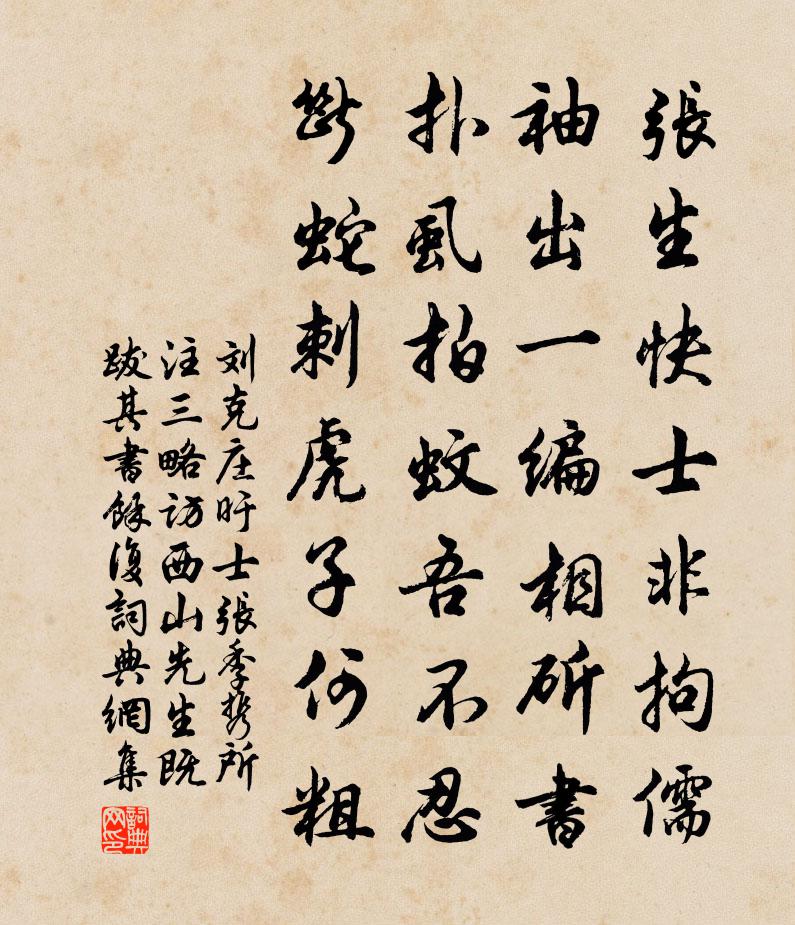 張生快士非拘儒
袖出一編相斫書
扑虱拍蚊吾不忍
斷蛇刺虎子何粗
刘克庄旴士張季携所
注三略访西山先生既
跋其書餘復詞典網集
詞典网印